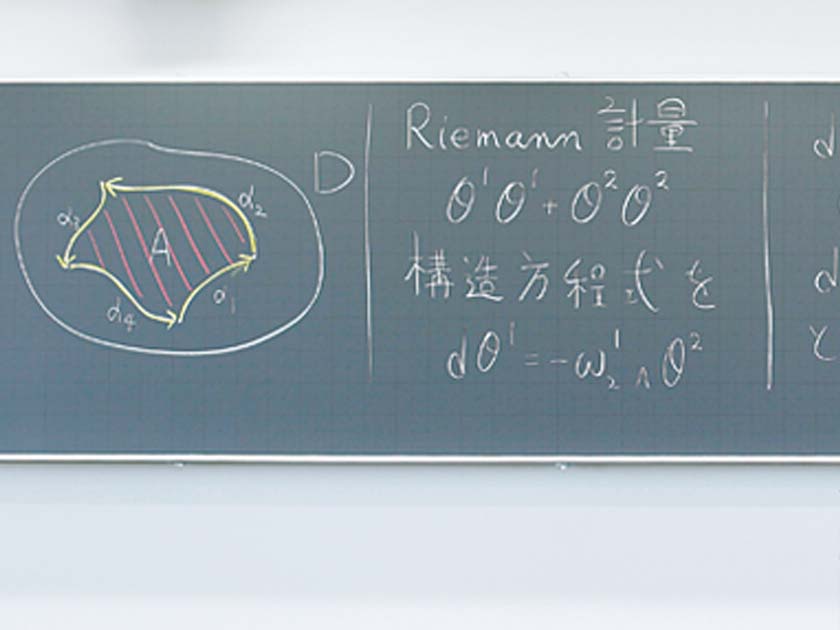 D
α₂
α₃
A
α₁
α₄
Riemann 計量
θ¹θ¹+θ²θ²
構造方程式を
dθ¹=-ω¹₂∧θ²
d
d
と